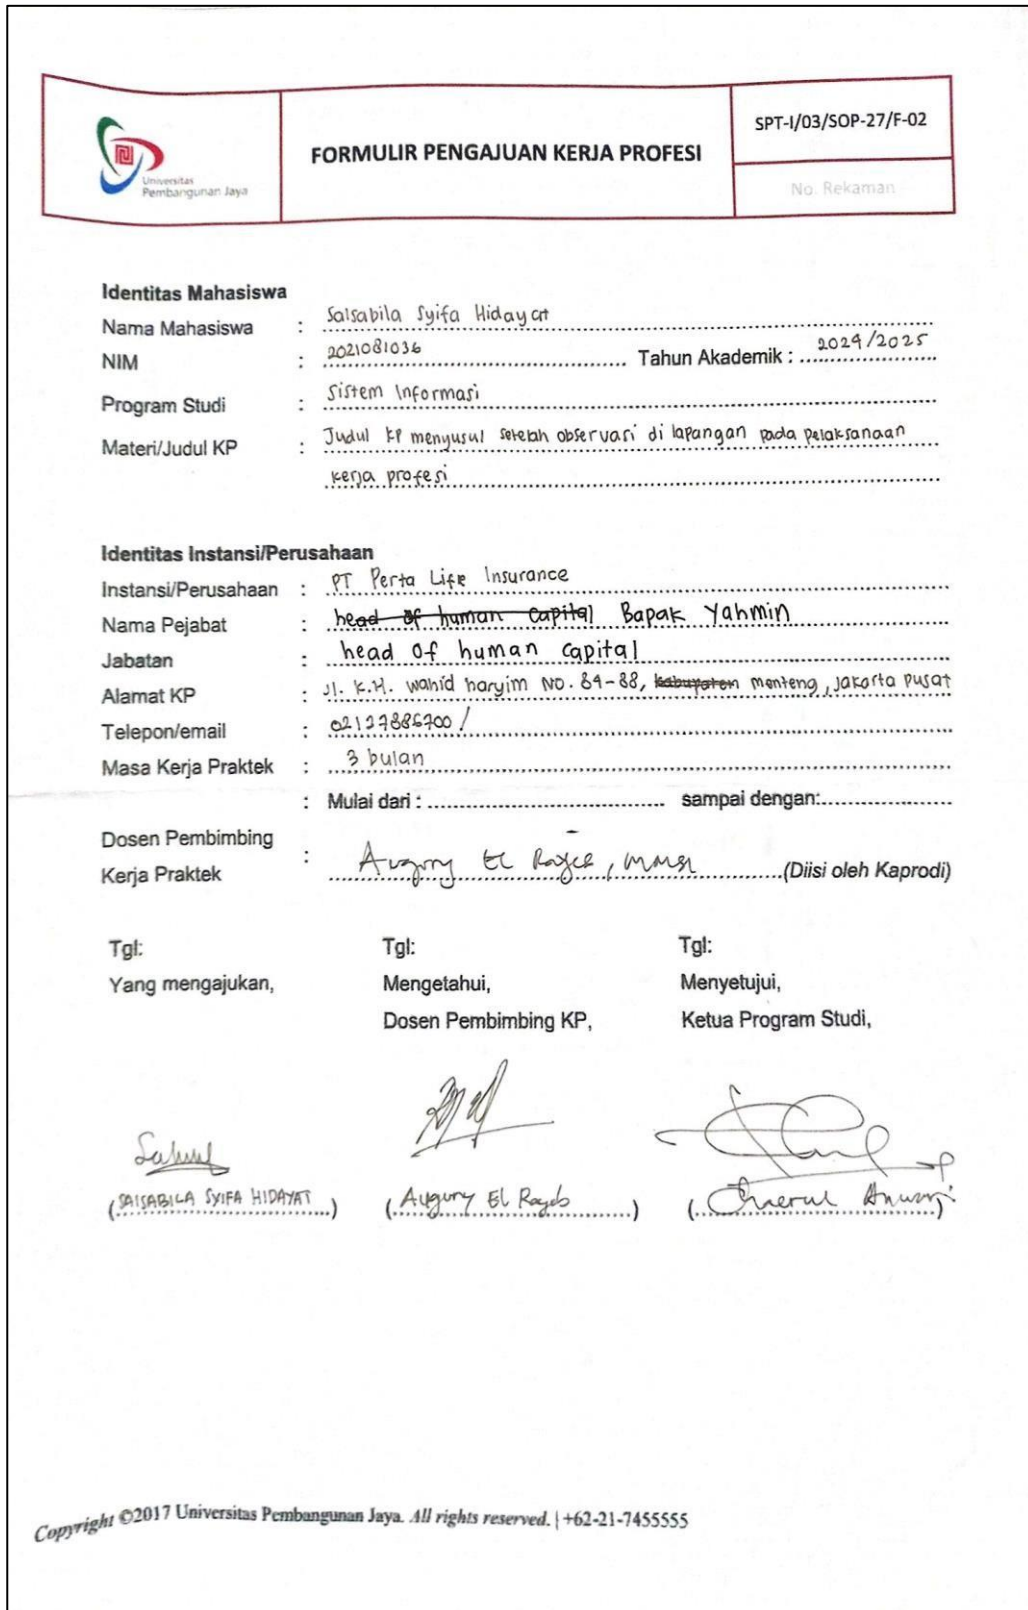 Universitas
Pembangunan Jaya
FORMULIR PENGAJUAN KERJA PROFESI
SPT-I/03/SOP-27/F-02
No. Rekaman
Identitas Mahasiswa
Nama Mahasiswa : Salsabila Syifa Hidayat
NIM : 2021081036 Tahun Akademik : 2024/2025
Program Studi : Sistem Informasi
Materi/Judul KP : Judul KP menyusul setelah observasi di lapangan pada pelaksanaan
kerja profesi
Identitas Instansi/Perusahaan
Instansi/Perusahaan : PT Perta Life Insurance
Nama Pejabat : head of human capital Bapak Yahmin
Jabatan : head of human capital
Alamat KP : Jl. K.H. wahid hasyim No. 84-88, kabupaten menteng, Jakarta Pusat
Telepon/email : 02127886700 /
Masa Kerja Praktek : 3 bulan
: Mulai dari : sampai dengan:
Dosen Pembimbing
Kerja Praktek : Augury El Rayeb, (Diisi oleh Kaprodi)
Tgl: Tgl: Tgl:
Yang mengajukan, Mengetahui, Menyetujui,
Dosen Pembimbing KP, Ketua Program Studi,
(SALSABILA SYIFA HIDAYAT) (Augury El Rayeb) (Chaerul Anwar)
Copyright ©2017 Universitas Pembangunan Jaya. All rights reserved. | +62-21-7455555